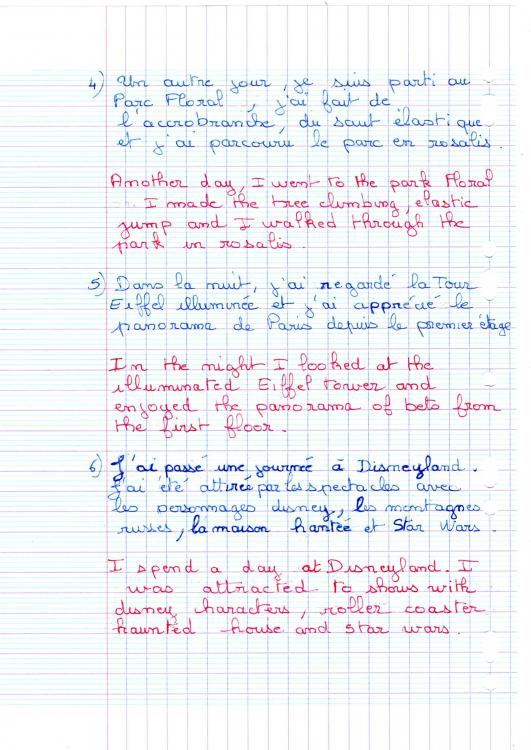 4) Un autre jour, je suis parti au
Parc Floral, j'ai fait de
l'accrobranche, du saut élastique
et j'ai parcouru le parc en rosalis.
Another day, I went to the park Floral
I made the tree climbing, elastic
jump and I walked through the
park in rosalis.
5) Dans la nuit, j'ai regardé la Tour
Eiffel illuminée et j'ai apprécié le
panorama de Paris depuis le premier étage
In the night I looked at the
illuminated Eiffel tower and
enjoyed the panorama of bets from
the first floor.
6) J'ai passé une journée à Disneyland.
J'ai été attirée par les spectacles avec
les personnages disney, les montagnes
russes, la maison hantée et Star Wars.
I spend a day at Disneyland. I
was attracted to shows with
disney haracters, roller coaster
haunted house and star wars.